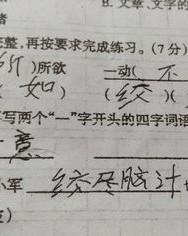 B. 文章、文字的
者
整,再按要求完成练习。(7分)
)所欲 一动( 不
( 如 ) ( 绞 )(
写两个“一”字开头的四字词语
一意
小军 绞尽脑汁